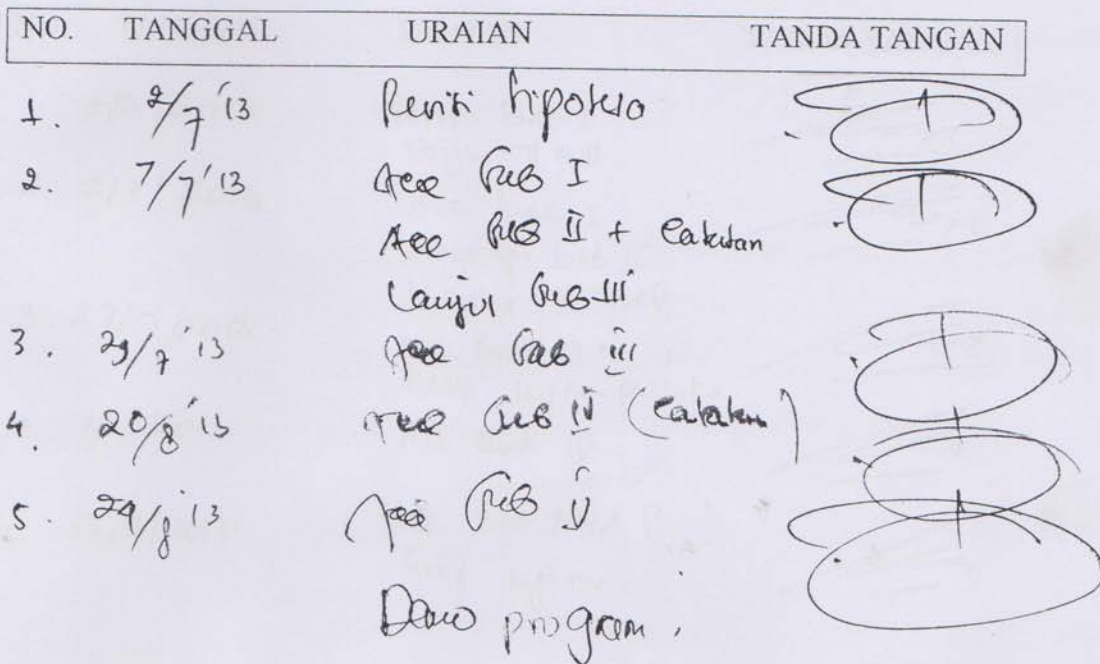 NO. TANGGAL URAIAN TANDA TANGAN
1. 2/7 '13 Revisi hipotesa
2. 7/7 '13 Acc Bab I
Acc Bab II + Catatan
Lanjut Bab III
3. 29/7 '13 Acc Bab III
4. 20/8 '13 Acc Bab IV (Catatan)
5. 29/8 '13 Acc Bab V
Demo program.